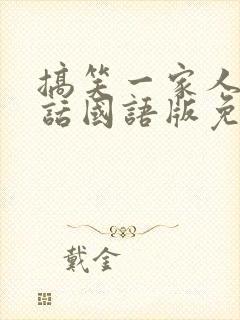 搞笑一家人
話國語版免
戴金